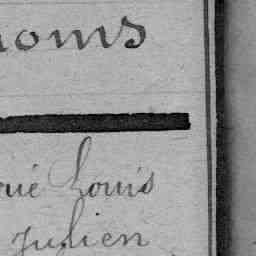 noms
rué Louis
Julien